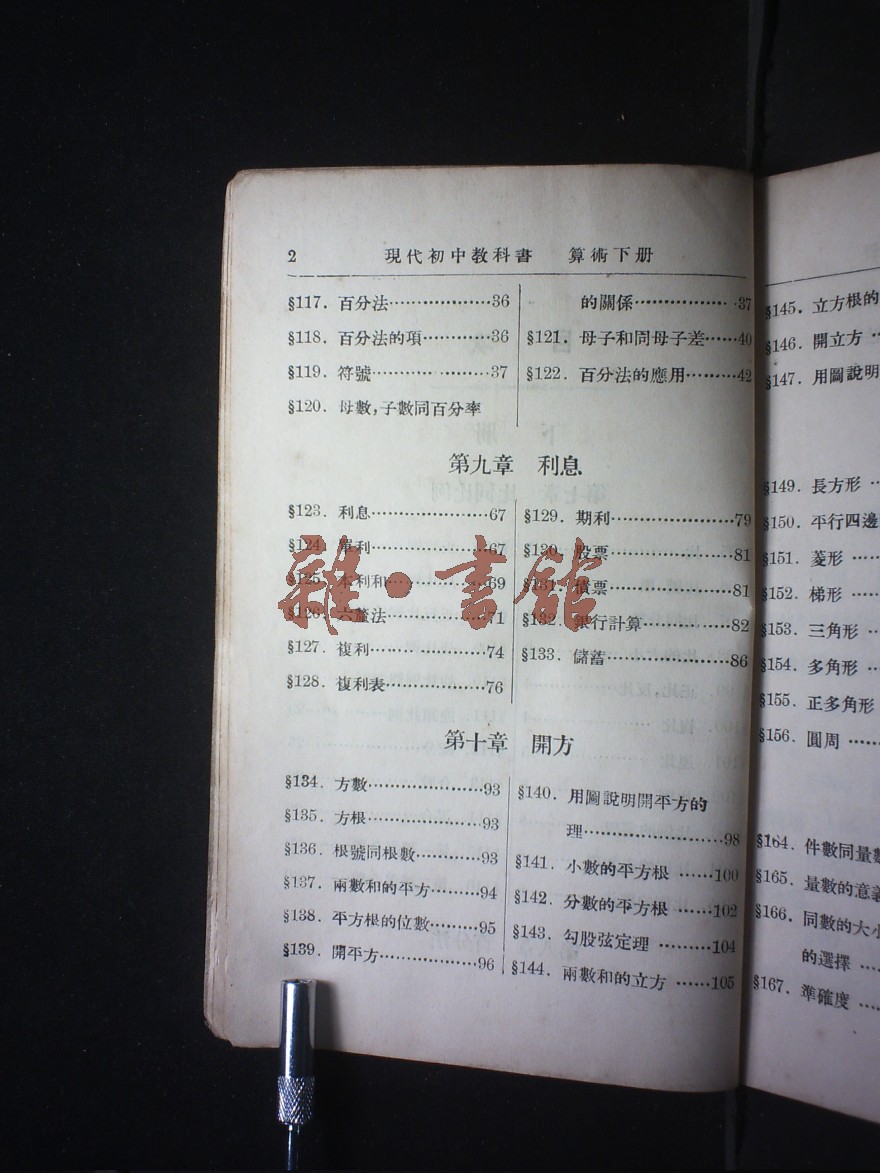 2 現代初中教科書 算術下册
§117. 百分法………………36
§118. 百分法的項…………36
§119. 符號…………………37
§120. 母數,子數同百分率
的關係………………37
§121. 母子和同母子差……40
§122. 百分法的應用………42
第九章 利息
§123. 利息…………………67
§124. 單利…………………67
§125. 本利和………………69
§126. 六釐法………………71
§127. 複利…………………74
§128. 複利表………………76
§129. 期利…………………79
§130. 股票…………………81
§131. 債票…………………81
§132. 銀行計算……………82
§133. 儲蓄…………………86
第十章 開方
§134. 方數…………………93
§135. 方根…………………93
§136. 根號同根數…………93
§137. 兩數和的平方………94
§138. 平方根的位數………95
§139. 開平方………………96
§140. 用圖說明開平方的
理……………………98
§141. 小數的平方根 ……100
§142. 分數的平方根 ……102
§143. 勾股弦定理 ………104
§144. 兩數和的立方 ……105
雜·書館
§145. 立方根的
§146. 開立方
§147. 用圖說明
§149. 長方形
§150. 平行四邊
§151. 菱形
§152. 梯形
§153. 三角形
§154. 多角形
§155. 正多角形
§156. 圓周
§164. 件數同量數
§165. 量數的意義
§166. 同數的大小
的選擇
§167. 準確度